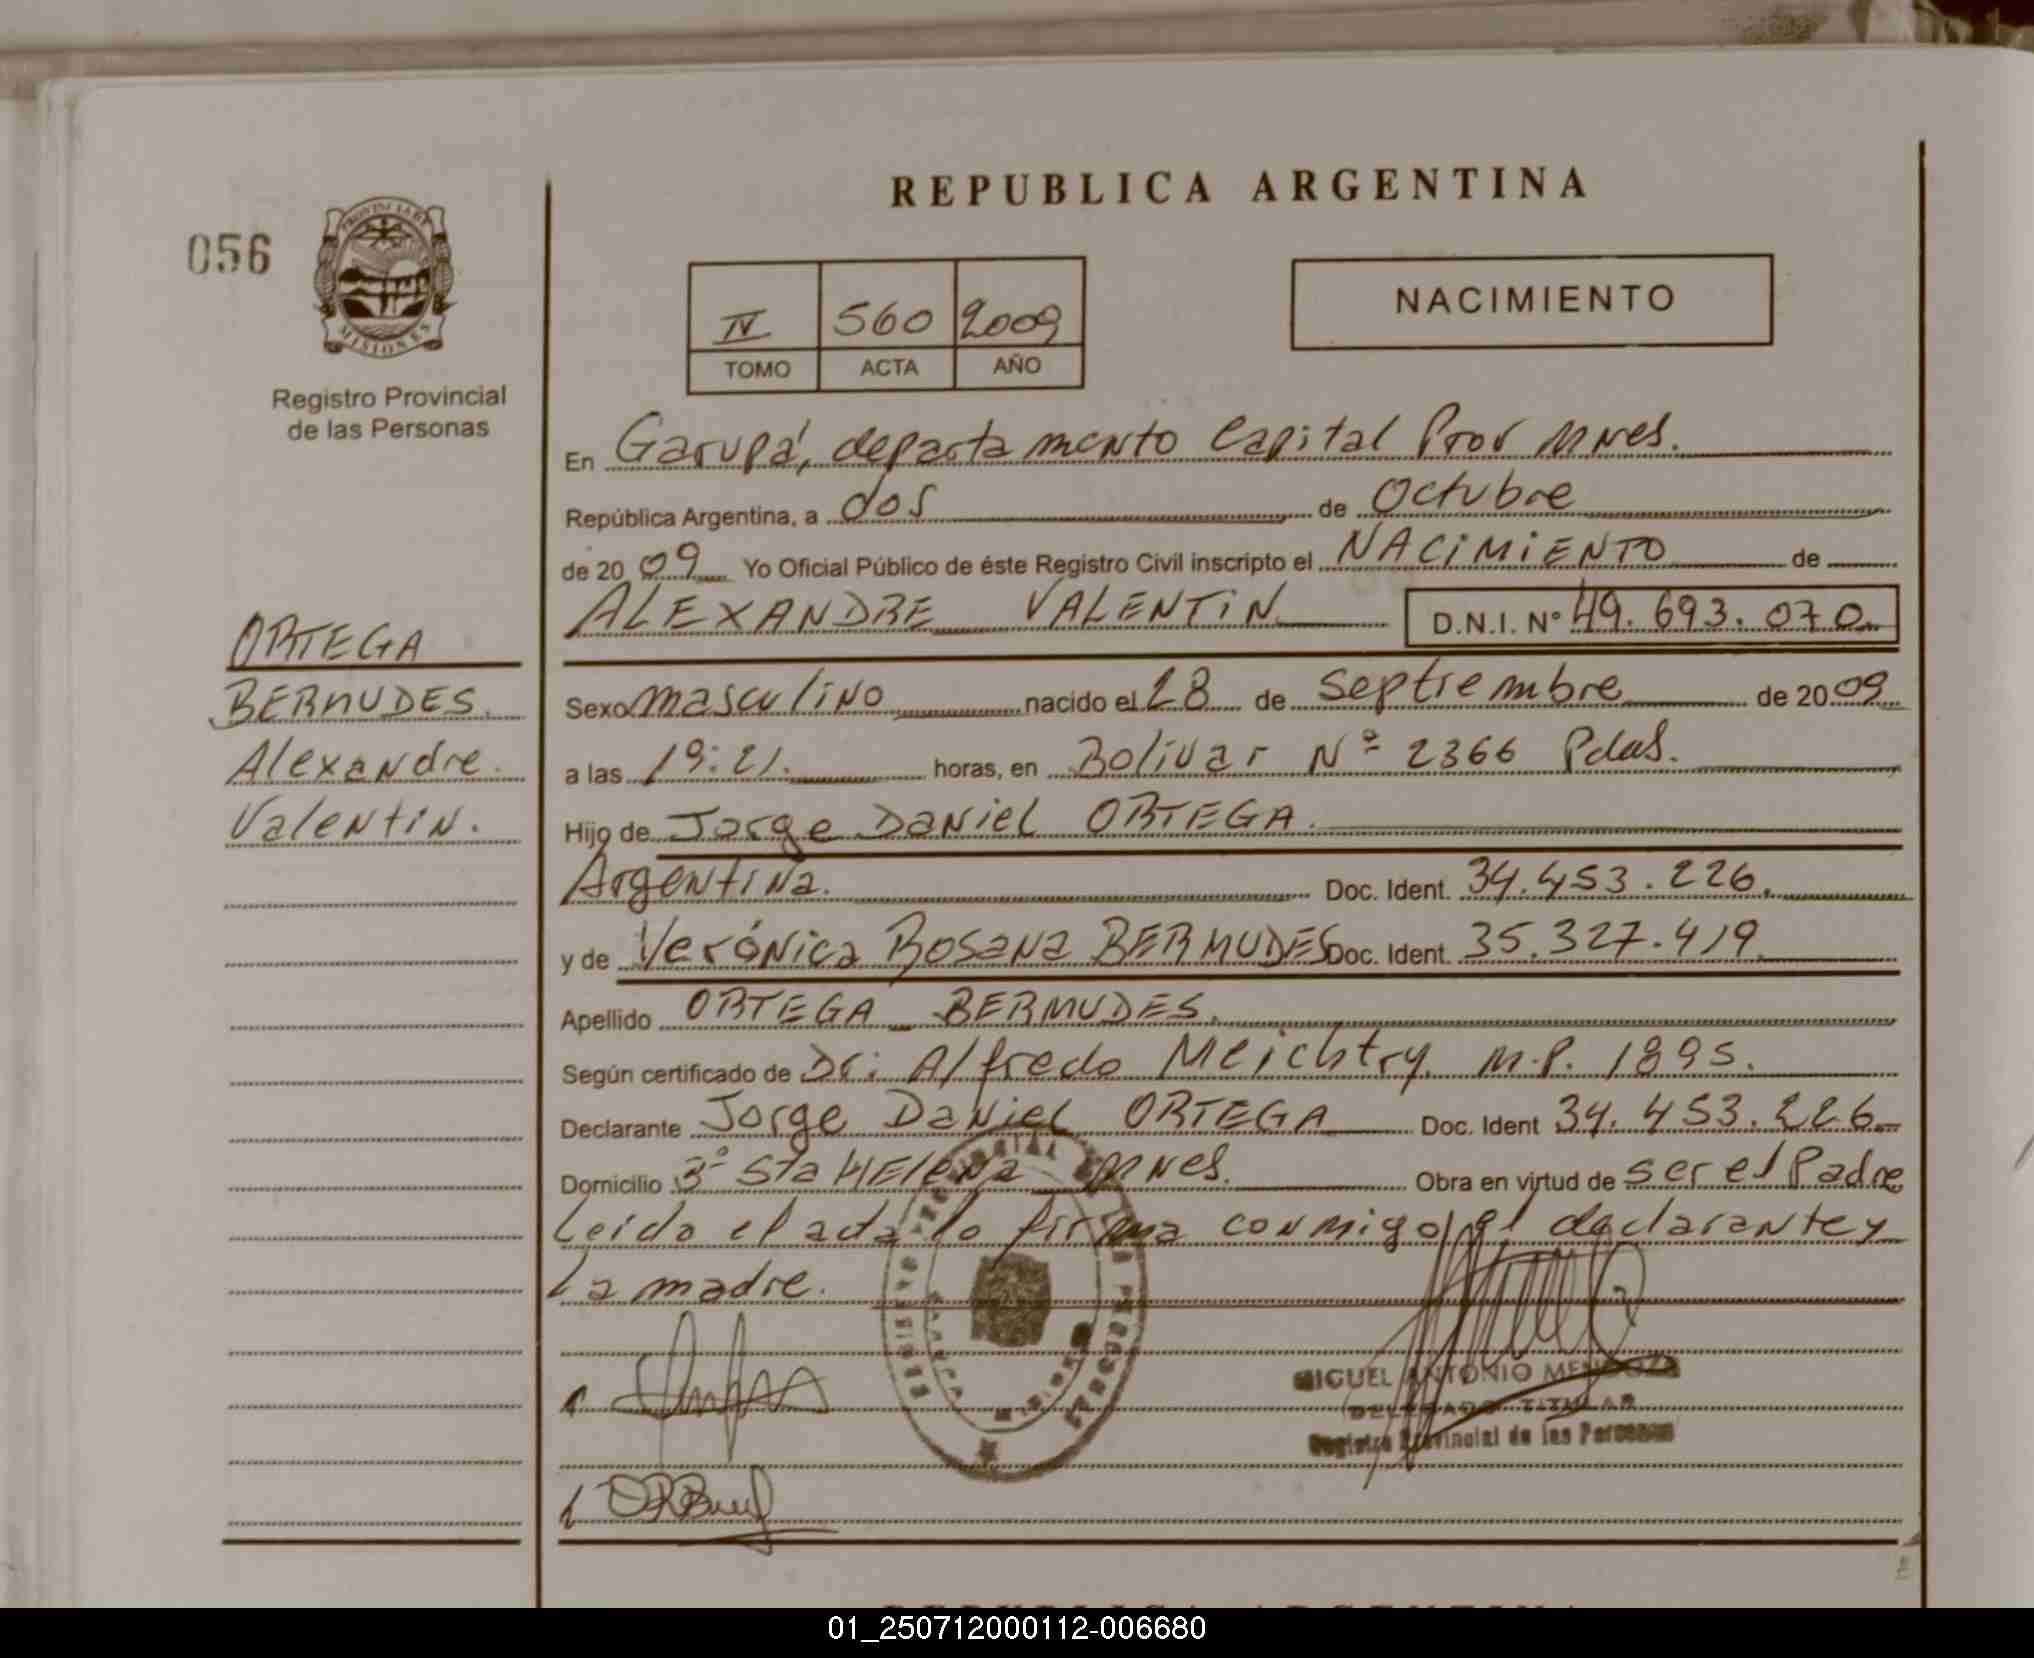 REPUBLICA ARGENTINA
056
PROVINCIA DE
MISIONES
Registro Provincial
de las Personas
IV 560 2009
TOMO ACTA AÑO
NACIMIENTO
En Garupá, departamento Capital Prov Mnes.
República Argentina, a dos de Octubre
de 2009 Yo Oficial Público de éste Registro Civil inscripto el NACIMIENTO de
ALEXANDRE VALENTIN D.N.I. Nº 49.693.070
ORTEGA
BERMUDES.
Alexandre.
Valentin.
Sexo masculino nacido el 28 de Septiembre de 2009
a las 19:21. horas, en Bolivar Nº 2366 Pdas.
Hijo de Jorge Daniel ORTEGA.
Argentina. Doc. Ident. 34.453.226.
y de Verónica Rosana BERMUDES Doc. Ident. 35.327.419.
Apellido ORTEGA BERMUDES.
Según certificado de Dr: Alfredo Meichtry. M.P. 1895.
Declarante Jorge Daniel ORTEGA Doc. Ident 34.453.226
Domicilio 3º Sta HElena Mnes. Obra en virtud de ser el Padre
Leído el acta lo firma conmigo el declarante y
La madre.
MIGUEL ANTONIO MENDOZA
DELEGADO TITULAR
Registro Provincial de las Personas
01_250712000112-006680